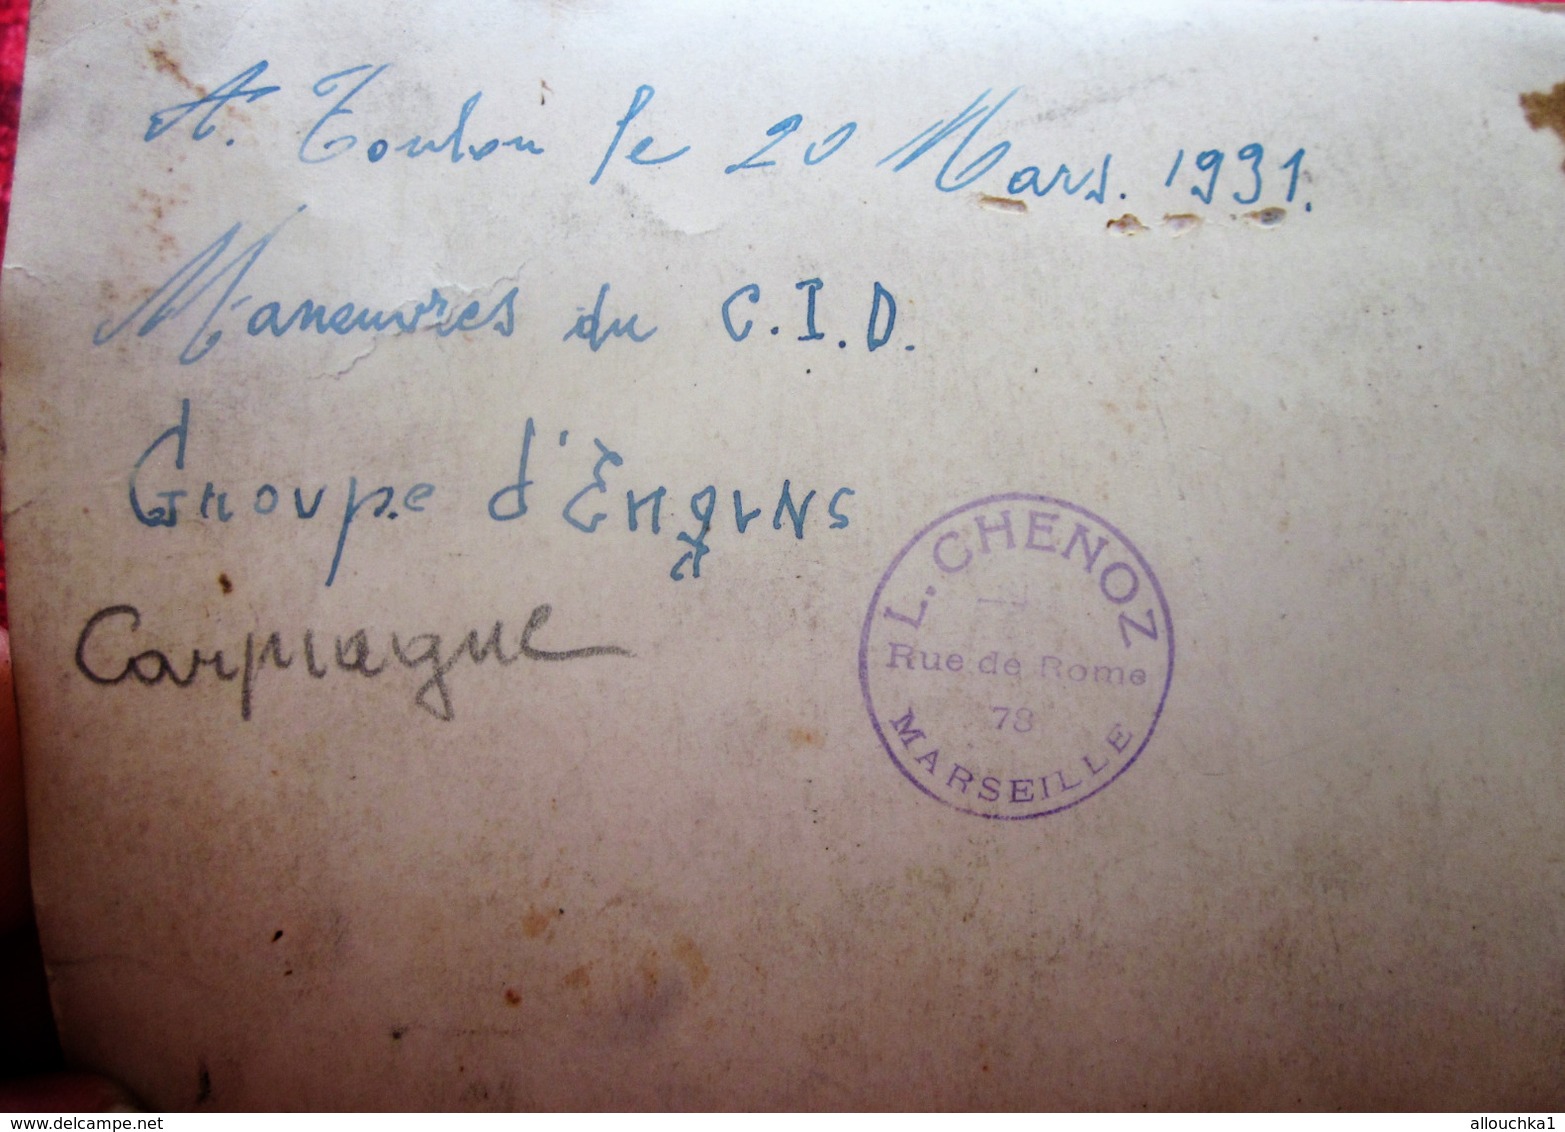 A. Toulon le 20 Mars. 1931.
Maneuvres du C.I.D.
Groupe d'Engins
Carpiagne
L. CHENOZ
Rue de Rome
78
MARSEILLE
delcampe.net
allouchka1